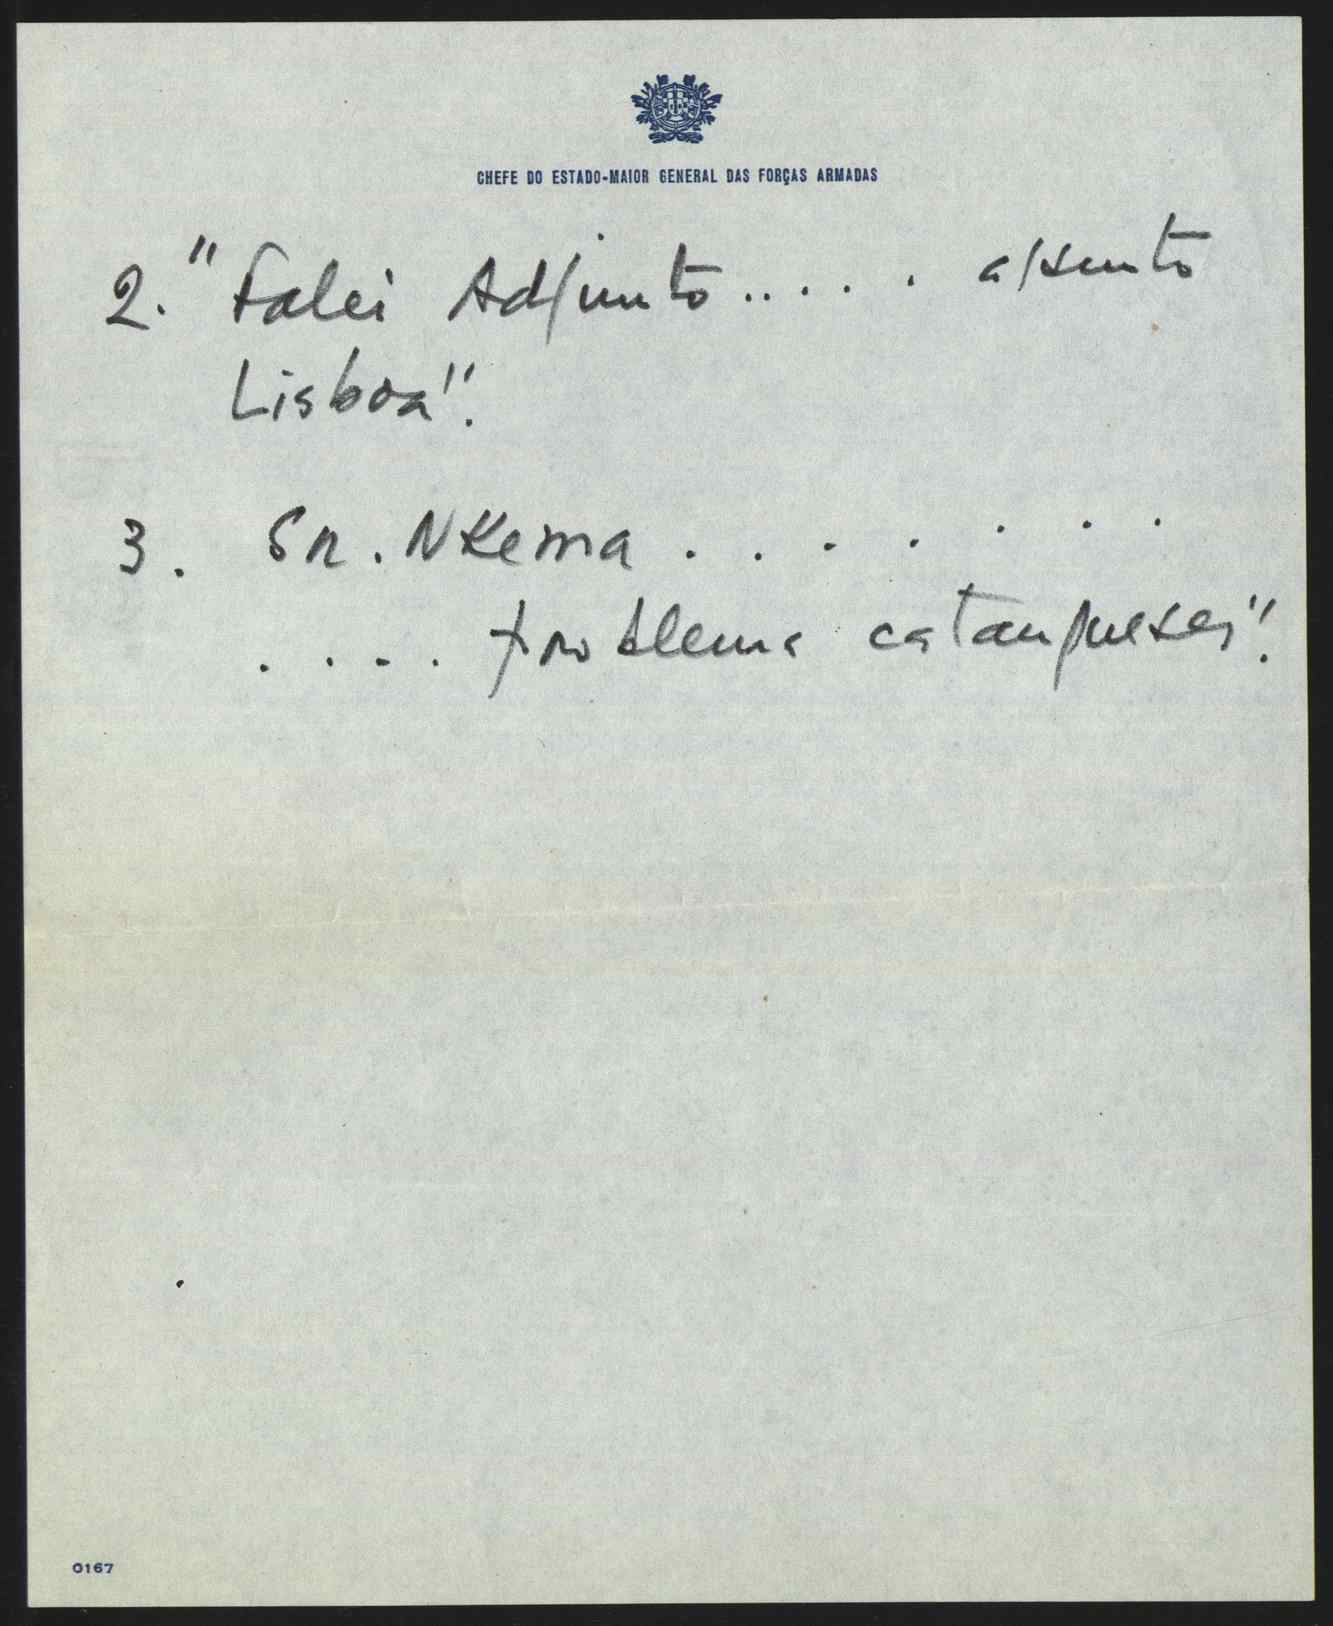 CHEFE DO ESTADO-MAIOR GENERAL DAS FORÇAS ARMADAS
2. "Falei Adjunto..... assunto
Lisboa".
3. Sr. NKema . . . . . . .
. . . . problema catangueses".
0167